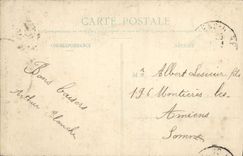 CARTE POSTALE
CORRESPONDANCE
ADRESSE
Bons baisers
Arthur Blanche
M Albert Lesueur fils
196 Montières les
Amiens
Somme